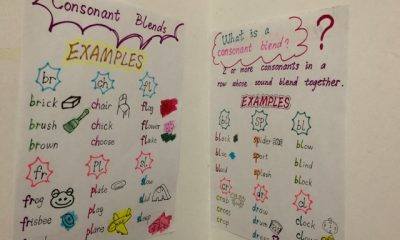 Consonant Blends
EXAMPLES
br ch fl
brick chair flag
brush chick flower
brown choose
fr pl sl
frog plate slow
frisbee play
plane
What is a
consonant blend? ?
2 or more consonants in a
row whose sound blend together.
EXAMPLES
bl sp bl
spider blow
blue sport blind
splash
cr dr cl
draw clock
cross drum clown
dress